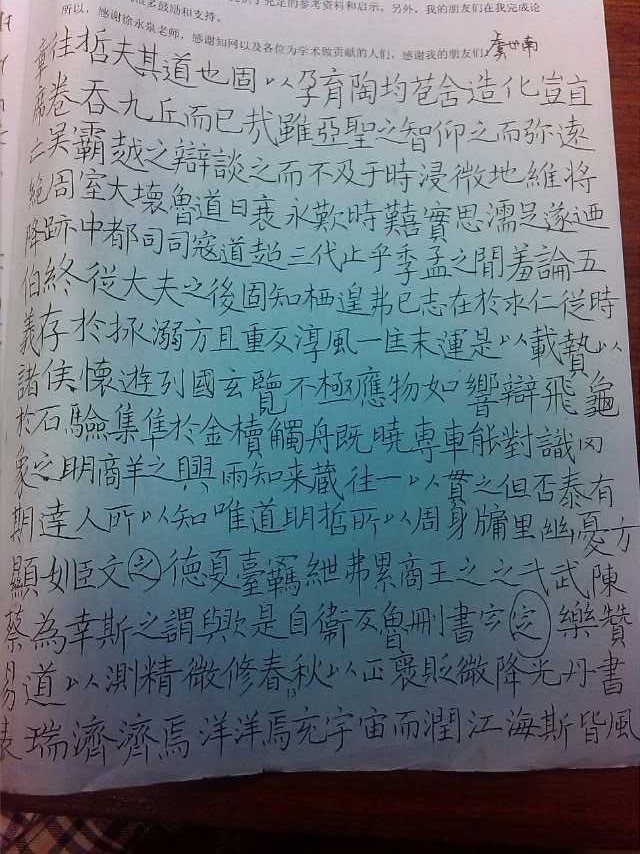 很多鼓励和支持。
所以，感谢徐永泉老师，感谢知网以及各位为学术做贡献的人们，感谢我的朋友们
虞世南
章往哲夫其道也固以孕育陶均苞含造化豈直
席卷吞九丘而已哉雖亞聖之智仰之而弥遠
亡吴霸越之辯談之而不及于時浸微地維將
絶周室大壞魯道日衰永歎時艱實思濡足遂迺
降跡中都司司寇道超三代止乎季孟之閒羞論五
伯終従大夫之後固知栖遑弗已志在於求仁従時
義存於拯溺方且重反淳風一匡末運是以載贄以
諸侯懷遊列國玄覽不極應物如響辯飛龜
於石驗集隼於金櫝觸舟既曉專車能對識罔
象之明商羊之興雨知来蔵往一以貫之但否泰有
期達人所以知唯道明哲所以周身牖里幽憂方
顯姬臣文之德夏臺羈紲弗累商王之之弌武陳
蔡為幸斯之謂歟是自衞反魯刪書定定樂贊
易道以測精微修春秋以正褒貶微降光丹書
表瑞濟濟焉洋洋焉充宇宙而潤江海斯皆風
13